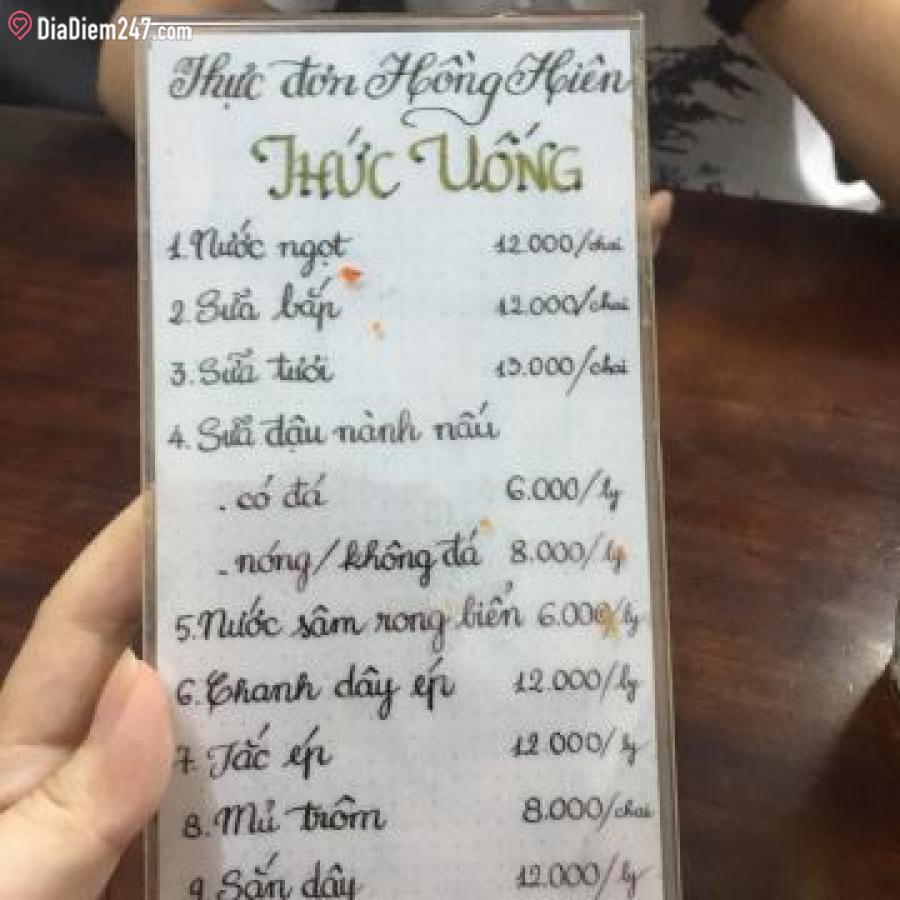 DiaDiem247.com
Thực đơn Hồng Hiên
THỨC UỐNG
1. Nước ngọt 12.000/chai
2. Sữa bắp 12.000/chai
3. Sữa tươi 13.000/chai
4. Sữa đậu nành nấu
. có đá 6.000/ly
. nóng/không đá 8.000/ly
5. Nước sâm rong biển 6.000/ly
6. Chanh dây ép 12.000/ly
7. Tắc ép 12.000/ly
8. Mủ trôm 8.000/chai
9. Sắn dây 12.000/ly